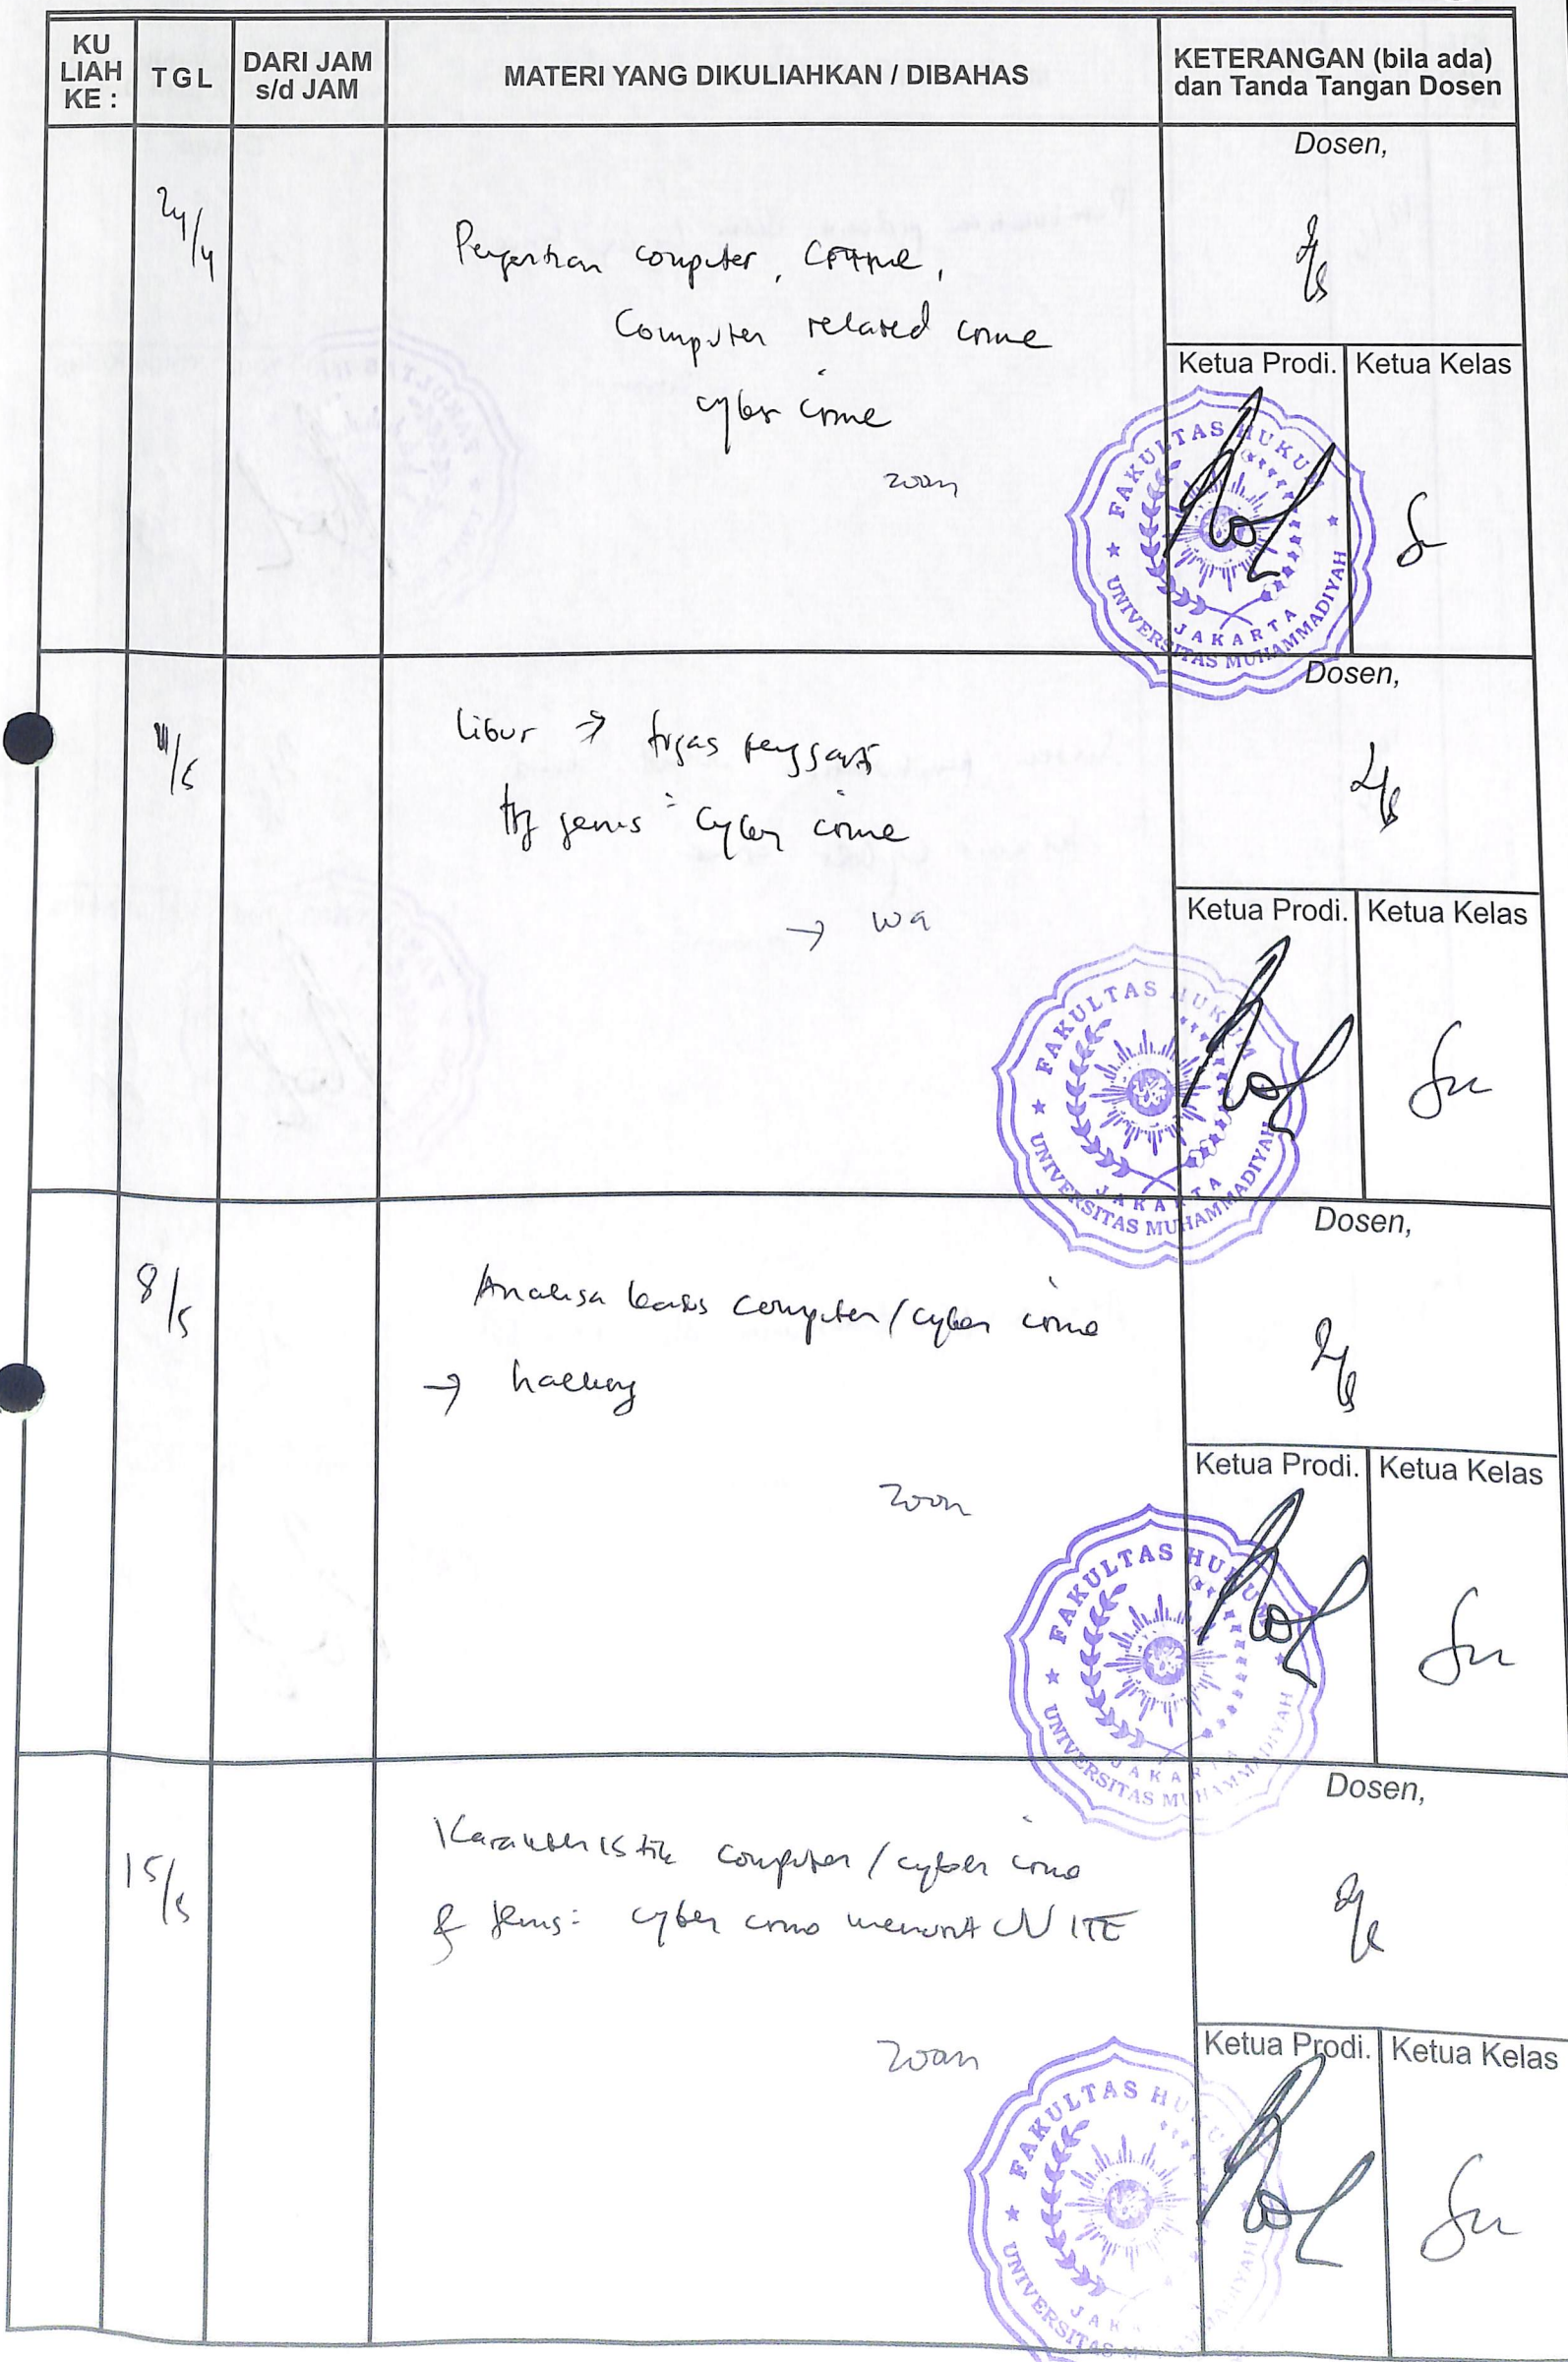 KU LIAH KE :
TGL
DARI JAM s/d JAM
MATERI YANG DIKULIAHKAN / DIBAHAS
KETERANGAN (bila ada) dan Tanda Tangan Dosen
24/4
Pengertian computer, crime,
Computer related crime
cyber crime
zoom
Dosen,
Ketua Prodi.
Ketua Kelas
FAKULTAS HUKUM
UNIVERSITAS MUHAMMADIYAH
JAKARTA
libur → tugas
jenis² cyber crime
→ wa
Dosen,
Ketua Prodi.
Ketua Kelas
FAKULTAS HUKUM
UNIVERSITAS MUHAMMADIYAH
JAKARTA
8/5
Analisa kasus computer/cyber crime
→ hacking
zoom
Dosen,
Ketua Prodi.
Ketua Kelas
FAKULTAS HUKUM
UNIVERSITAS MUHAMMADIYAH
JAKARTA
15/5
Karakteristik computer/cyber crime
& jenis² cyber crime menurut UU ITE
zoom
Dosen,
Ketua Prodi.
Ketua Kelas
FAKULTAS HUKUM
UNIVERSITAS MUHAMMADIYAH
JAKARTA